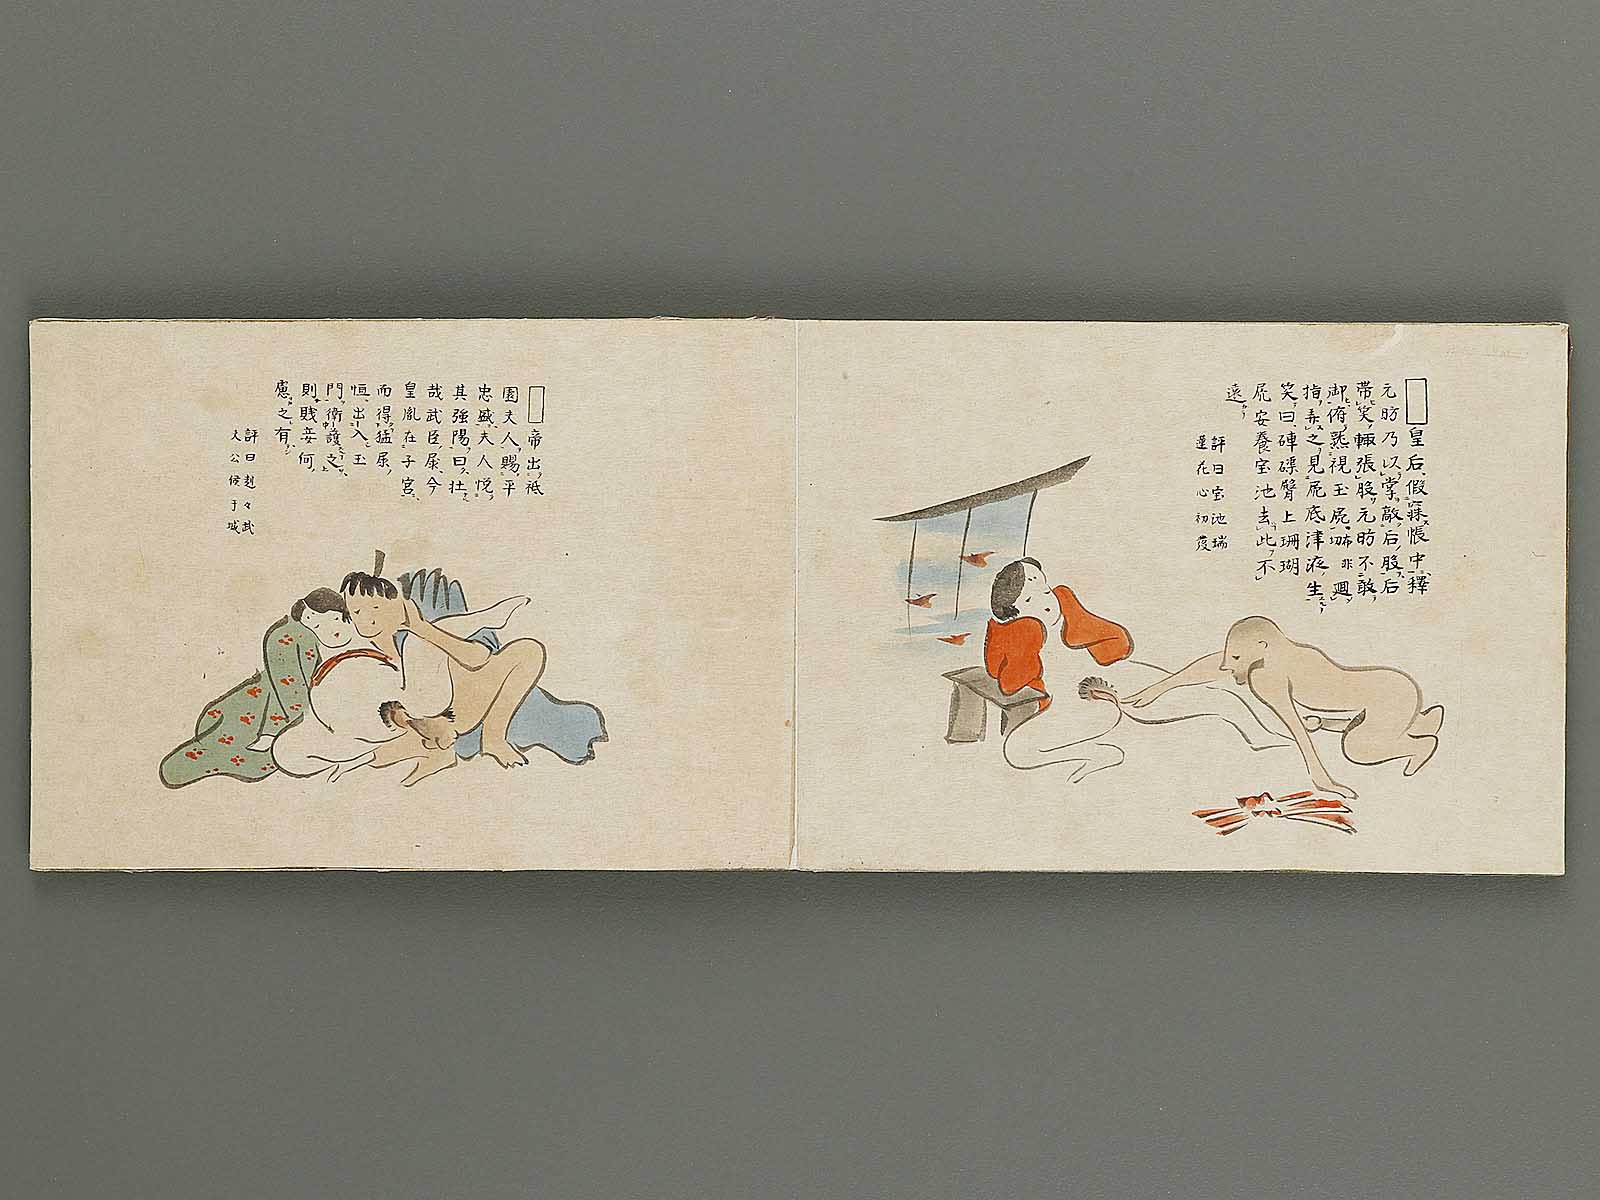 皇后、假寐帳中、釋
元昉乃以掌敲后股后
帯笑、輙張股、元昉不敢
御俯、熟視玉戺
指弄之、見戺底津液生
笑曰、硨磲臂上珊瑚
戺安養宝池去此不
遠
評曰宝池瑞
蓮花心初發
帝出、祗
園夫人、賜平
忠盛、夫人悦
其強陽、曰、壮
哉武臣㞗、今
皇胤在子宮
而得猛㞗
恒出入玉
門、衛護之
則、賎妾何
慮之有
評曰赳々武
夫公侯于城